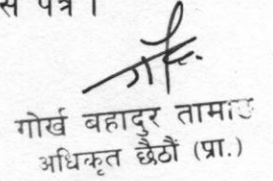 स पत्र ।
गोर्ख बहादुर तामाङ
अधिकृत छैठौं (प्रा.)